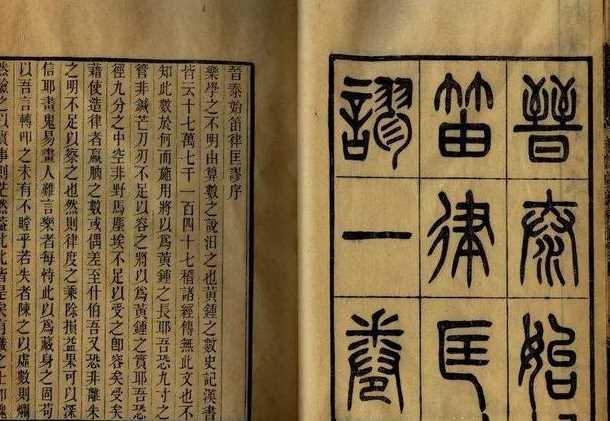 晉泰始
笛律匡
謬一卷
晉泰始笛律匡謬序
樂學之不明由算數之說汨之也黃鍾之數史記漢書
皆云十七萬七千一百四十七稽諸經傳無此文也不
知此數於何而施用將以爲黃鍾之長耶吾恐九寸之
管非鍼芒刀刃不足以容之將以爲黃鍾之實耶吾恐
徑九分之中空非野馬塵埃不足以受之卽容矣受矣
藉使造律者贏朒之數或偶差至什伯吾又恐非離朱
之明不足以察之也然則律度之乘除損益果可以深
信耶畫鬼易畫人難言樂者每恃此以爲藏身之固苟
以吾言轉叩之未有不瞠乎若失者陳之以虛數則爛
然驗之以實事則茫然蓋比比皆是矣有識之士